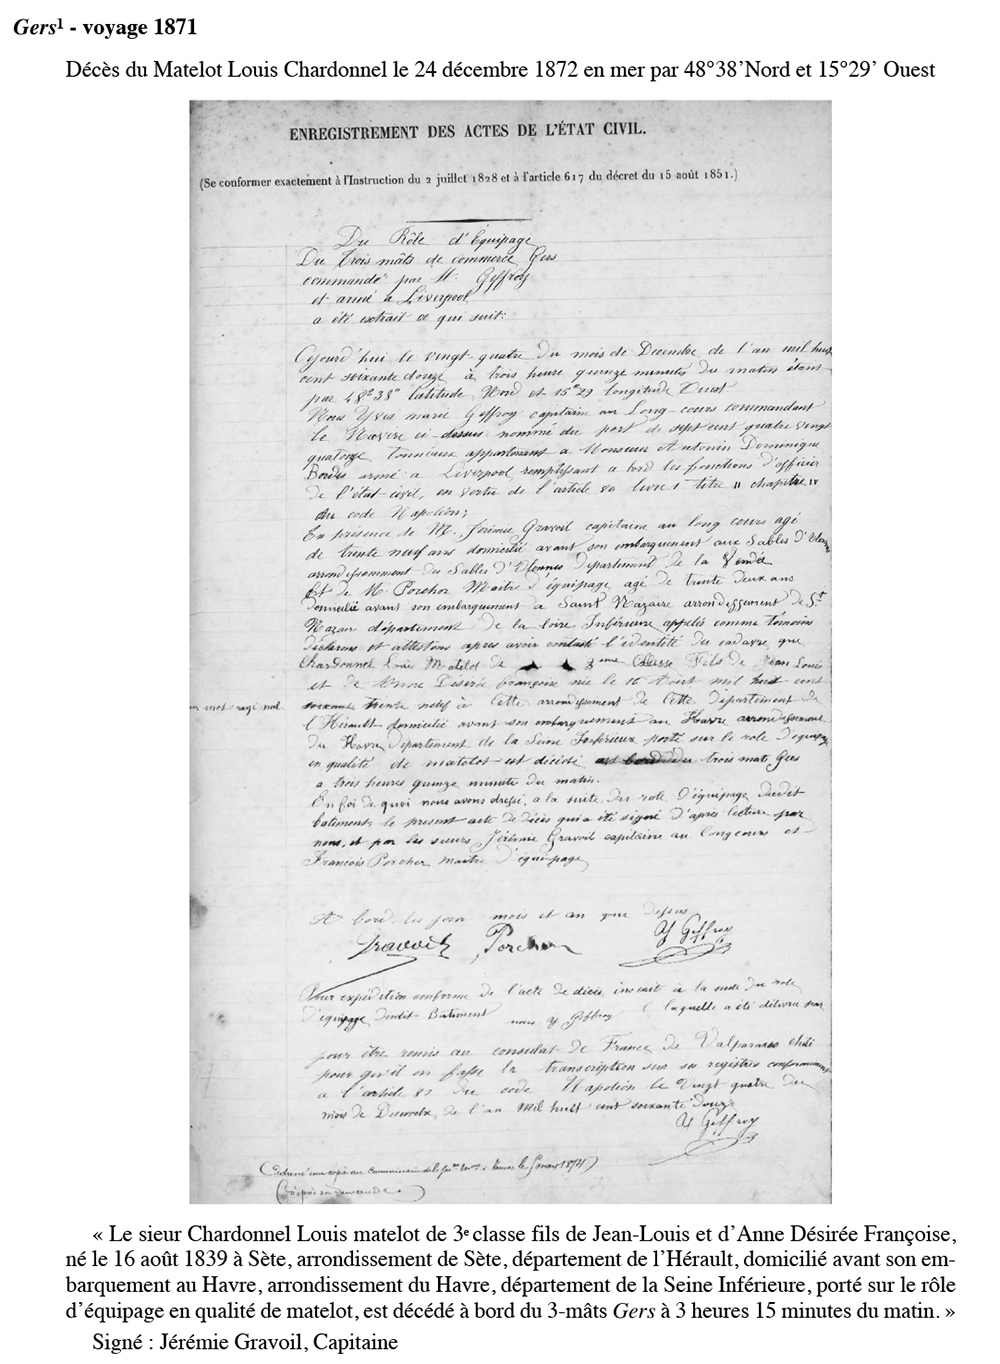 Gers¹ - voyage 1871
Décès du Matelot Louis Chardonnel le 24 décembre 1872 en mer par 48°38’Nord et 15°29’ Ouest
ENREGISTREMENT DES ACTES DE L’ÉTAT CIVIL.
(Se conformer exactement à l’Instruction du 2 juillet 1828 et à l’article 617 du décret du 15 août 1851.)
Du Rôle d’Équipage
Du trois mâts de commerce Gers
commandé par M. Geffroy
et armé à Liverpool
a été extrait ce qui suit:
Cejourd’hui le vingt-quatre du mois de Décembre de l’an mil huit
cent soixante douze à trois heure quinze minutes du matin étant
par 48° 38" latitude Nord et 15° 29 longitude Ouest
Nous Yves marie Geffroy capitaine au Long-cours commandant
le Navire ci-dessus nommé du port de sept cent quatre vingt
quatorze tonneaux appartenant à Monsieur Antonin Dominique
Bordes armé à Liverpool remplissant à bord les fonctions d’officier
de l’état-civil, en vertu de l’article 80 livre 1 titre II chapitre IV
du code Napoléon;
En présence de M. Jérémie Gravoil capitaine au long cours agé
de trente neuf ans domicilié avant son embarquement aux Sables d’Olonnes
arrondissement des Sables d’Olonnes département de la Vendée
Et de M. Porcher Maitre d’équipage agé de trente deux ans
domicilié avant son embarquement à Saint Nazaire arrondissement de St
Nazaire département de la loire Inférieure appelés comme témoins
déclarons et attestons après avoir constaté l’identité du cadavre que
Chardonnel Louis Matelot de 3eme Classe Fils de Jean Louis
et de Anne Désirée Françoise née le 16 Août mil huit cent
trente neuf à Cette arrondissement de Cette département de
un mot rayé nul
l’Hérault domicilié avant son embarquement au Havre arrondissement
du Havre département de la Seine Inférieure porté sur le role d’équipage
en qualité de matelot est décédé trois mats Gers
a trois heures quinze minute du matin.
En foi de quoi nous avons dressé, a la suite du role d’équipage dudit
batiment le present acte de décès qui a été signé d’après lecture par
nous, et par les sieurs Jérémie Gravoil capitaine au long cours et
François Porcher maitre d’équipage
A bord les jour mois et an que dessus
Gravoil Porcher Y Geffroy
Pour expédition conforme de l’acte de décès inscrit à la suite du role
d’équipage dudit Bâtiment nous Y Geffroy laquelle a été délivrée par
pour être remis au consulat de France de Valparaiso chili
pour qu’il en fasse la transcription sur ses registres conformément
a l’article 87 du code Napoléon le Vingt quatre du
mois de Décembre de l’an Mil huit cent soixante douze
Y Geffroy
« Le sieur Chardonnel Louis matelot de 3e classe fils de Jean-Louis et d’Anne Désirée Françoise,
né le 16 août 1839 à Sète, arrondissement de Sète, département de l’Hérault, domicilié avant son em-
barquement au Havre, arrondissement du Havre, département de la Seine Inférieure, porté sur le rôle
d’équipage en qualité de matelot, est décédé à bord du 3-mâts Gers à 3 heures 15 minutes du matin. »
Signé : Jérémie Gravoil, Capitaine